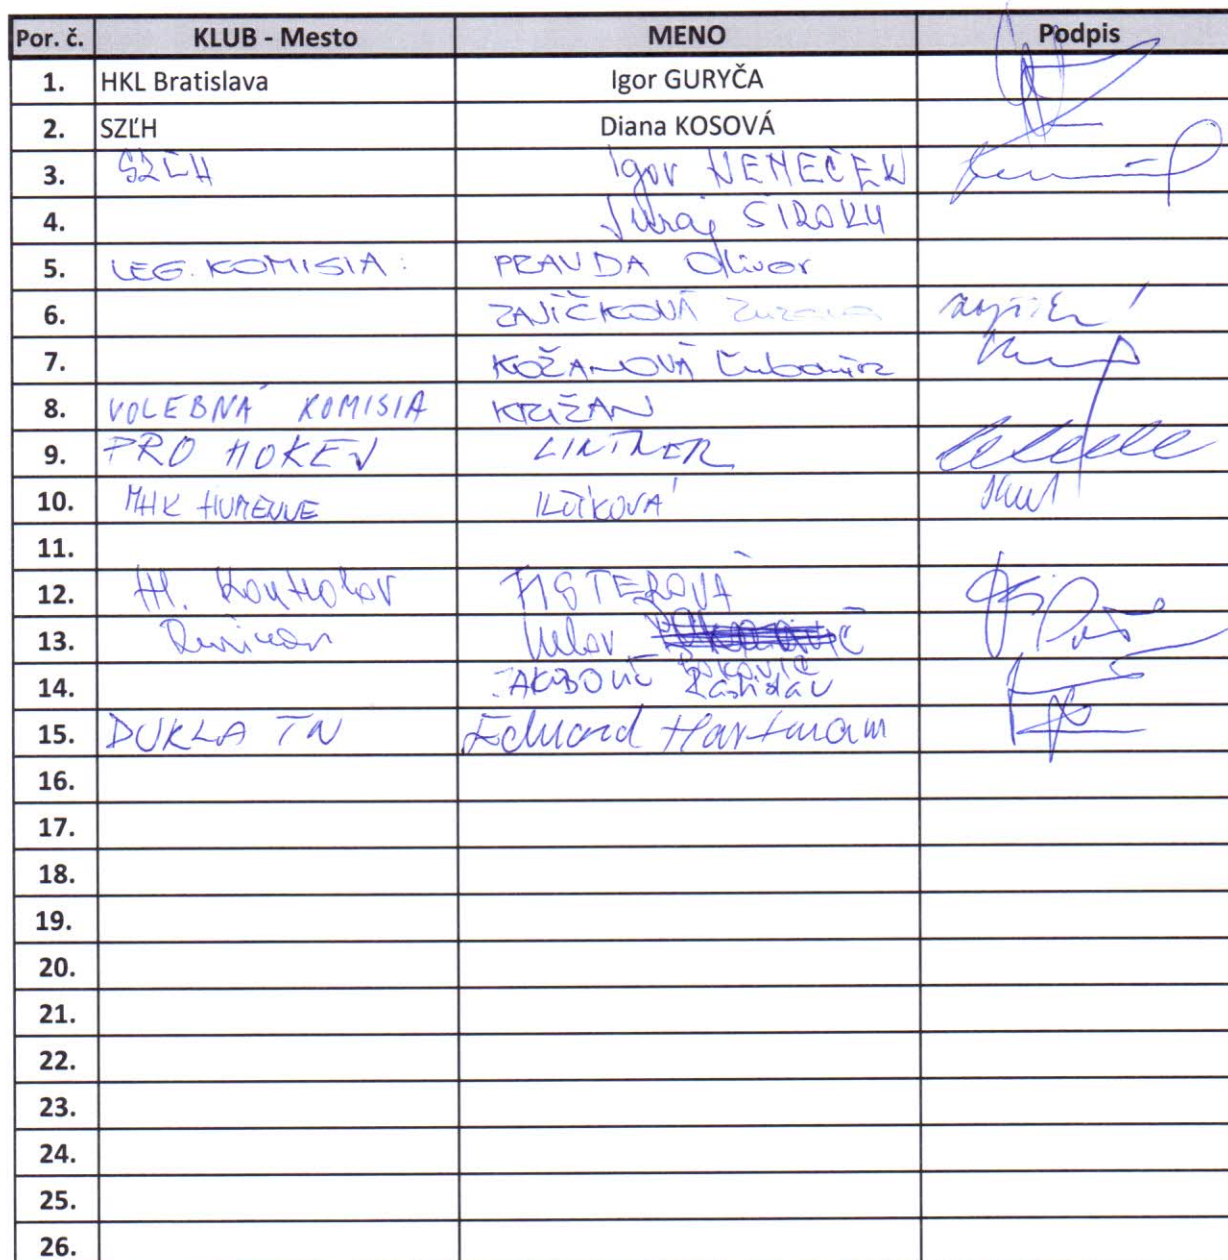 Por. č. KLUB - Mesto MENO Podpis
1. HKL Bratislava Igor GURYČA
2. SZĽH Diana KOSOVÁ
3. SZĽH Igor NEMEČEK
4. Juraj ŠIROKÝ
5. LEG. KOMISIA: PRAVDA Oliver
6. ZAJÍČKOVÁ Zuzana
7. KOŽANOVÁ Ľubomíra
8. VOLEBNÁ KOMISIA KRIŽAN
9. PRO HOKEJ LINTNER
10. MHK HUMENNE
11.
12. Hl. Kontrolor FIGTEROVÁ
13.
14. JAKUBOVIČ Rastislav
15. DUKLA TN Eduard Hartmann
16.
17.
18.
19.
20.
21.
22.
23.
24.
25.
26.